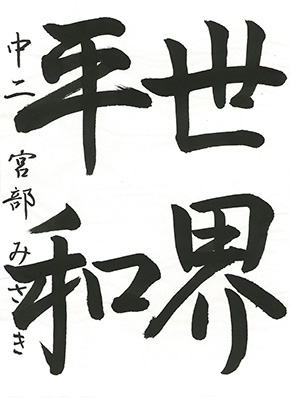 世界
平和
中二 宮部みさき